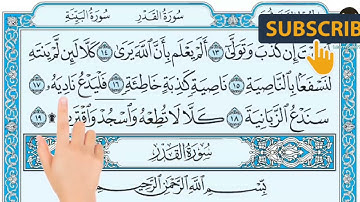 سُورَةُ الْقَدْرِ سُورَةُ الْبَيِّنَةِ
SUBSCRIB
إِن كَذَّبَ وَتَوَلَّىٰ ١٣ أَلَمْ يَعْلَم بِأَنَّ اللَّهَ يَرَىٰ ١٤ كَلَّا لَئِن لَّمْ يَنتَهِ
لَنَسْفَعًۢا بِالنَّاصِيَةِ ١٥ نَاصِيَةٍ كَٰذِبَةٍ خَاطِئَةٍ ١٦ فَلْيَدْعُ نَادِيَهُۥ ١٧
سَنَدْعُ الزَّبَانِيَةَ ١٨ كَلَّا لَا تُطِعْهُ وَاسْجُدْ وَاقْتَرِب ۩ ١٩
سُورَةُ الْقَدْرِ
بِسْمِ اللَّهِ الرَّحْمَٰنِ الرَّحِيمِ